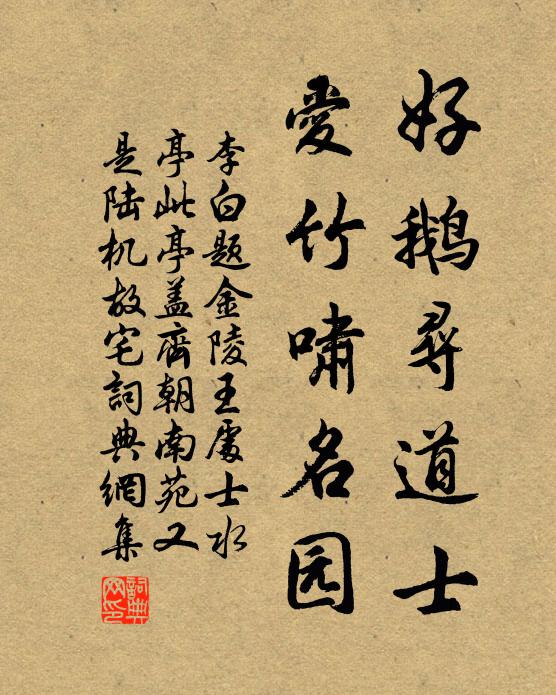 好鹅尋道士
愛竹啸名园
李白题金陵王處士水
亭此亭盖齊朝南苑又
是陆机故宅詞典網集
詞典网印